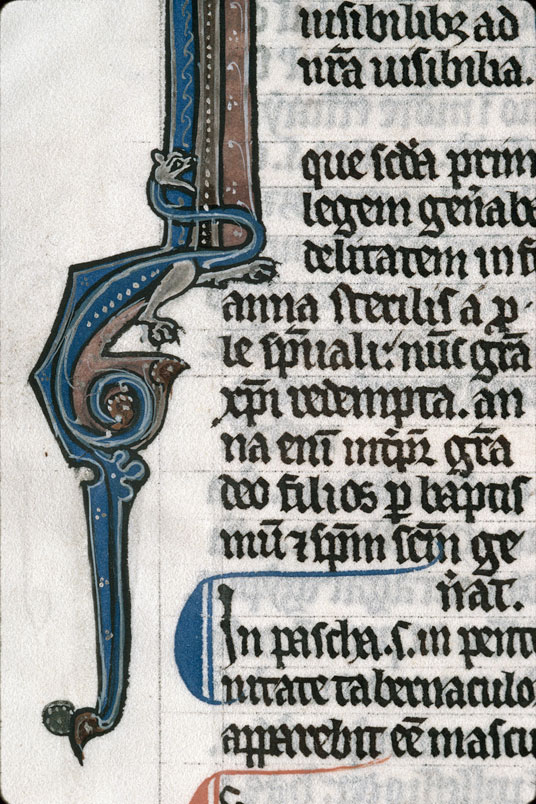 uisibilibꝫ ad
nr̃a uisibilia.
que scďa prim
legem gen̄aba
delitatem in f
anna sterilis a pͦ
le sp̄uali: nūc gr̃a
xp̄i redempta. an
na enī int̾p̄r gr̃a
deo filios ꝑ baptis
mū ⁊ sp̄m sc̄m ge
n̾at.
In pascha. s. in pente
nitate tabernaculo
apparebit eē mascu